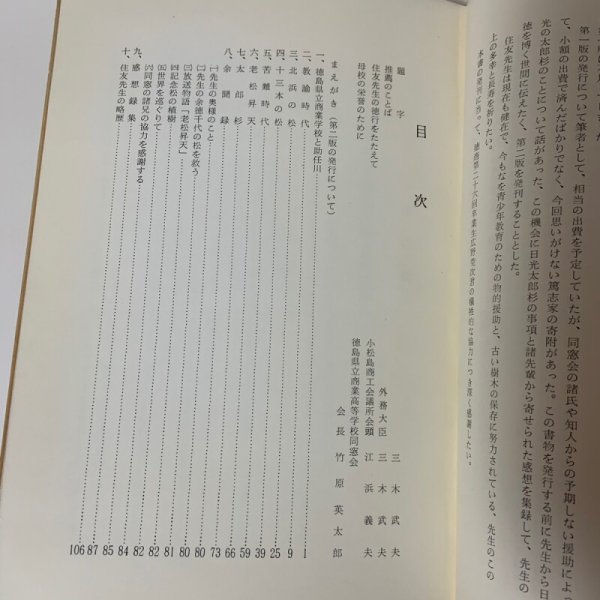 第一版の発行について筆者として、相当の出費を予定していたが、同窓会の諸氏や知人からの予期しない援助によっ
て、小額の出費で済んだばかりでなく、今回思いがけない篤志家の寄附があった。この書物を発行する前に先生から日
光の太郎杉のことについて話があった。この機会に日光太郎杉の事項と諸先輩から寄せられた感想を集録して、先生の
徳を博く世間に伝えたく、第二版を発刊することとした。
住友先生は現在も健在で、今もなを青少年教育のための物的援助と、古い樹木の保存に努力されている、先生のこの
上の多幸と長寿を祈りたい。
本書の発刊に当って、徳商第二十六回卒業生広野 君の犠牲的な協力につき深く感謝したい。
目次
題字 外務大臣 三木武夫
推薦のことば 三木武夫
住友先生の徳行をたたえて 小松島商工会議所会頭 江浜義夫
母校の栄誉のために 徳島県立商業高等学校同窓会
会長 竹原英太郎
まえがき（第二版の発行について）
一、徳島県立商業学校と助任川 1
二、教諭時代 9
三、北浜の松 25
四、十三本の松 39
五、苦難時代 59
六、老松昇天 66
七、太郎杉 73
八、余聞録 80
㈠先生の奥様のこと 80
㈡先生の余徳千代の松を救う 81
㈢放送物語「老松昇天」 82
㈣記念松の植樹 82
㈤世界を巡りて 84
㈥同窓の諸兄の協力を感謝する 85
九、感想録集 87
十、住友先生の略歴 106